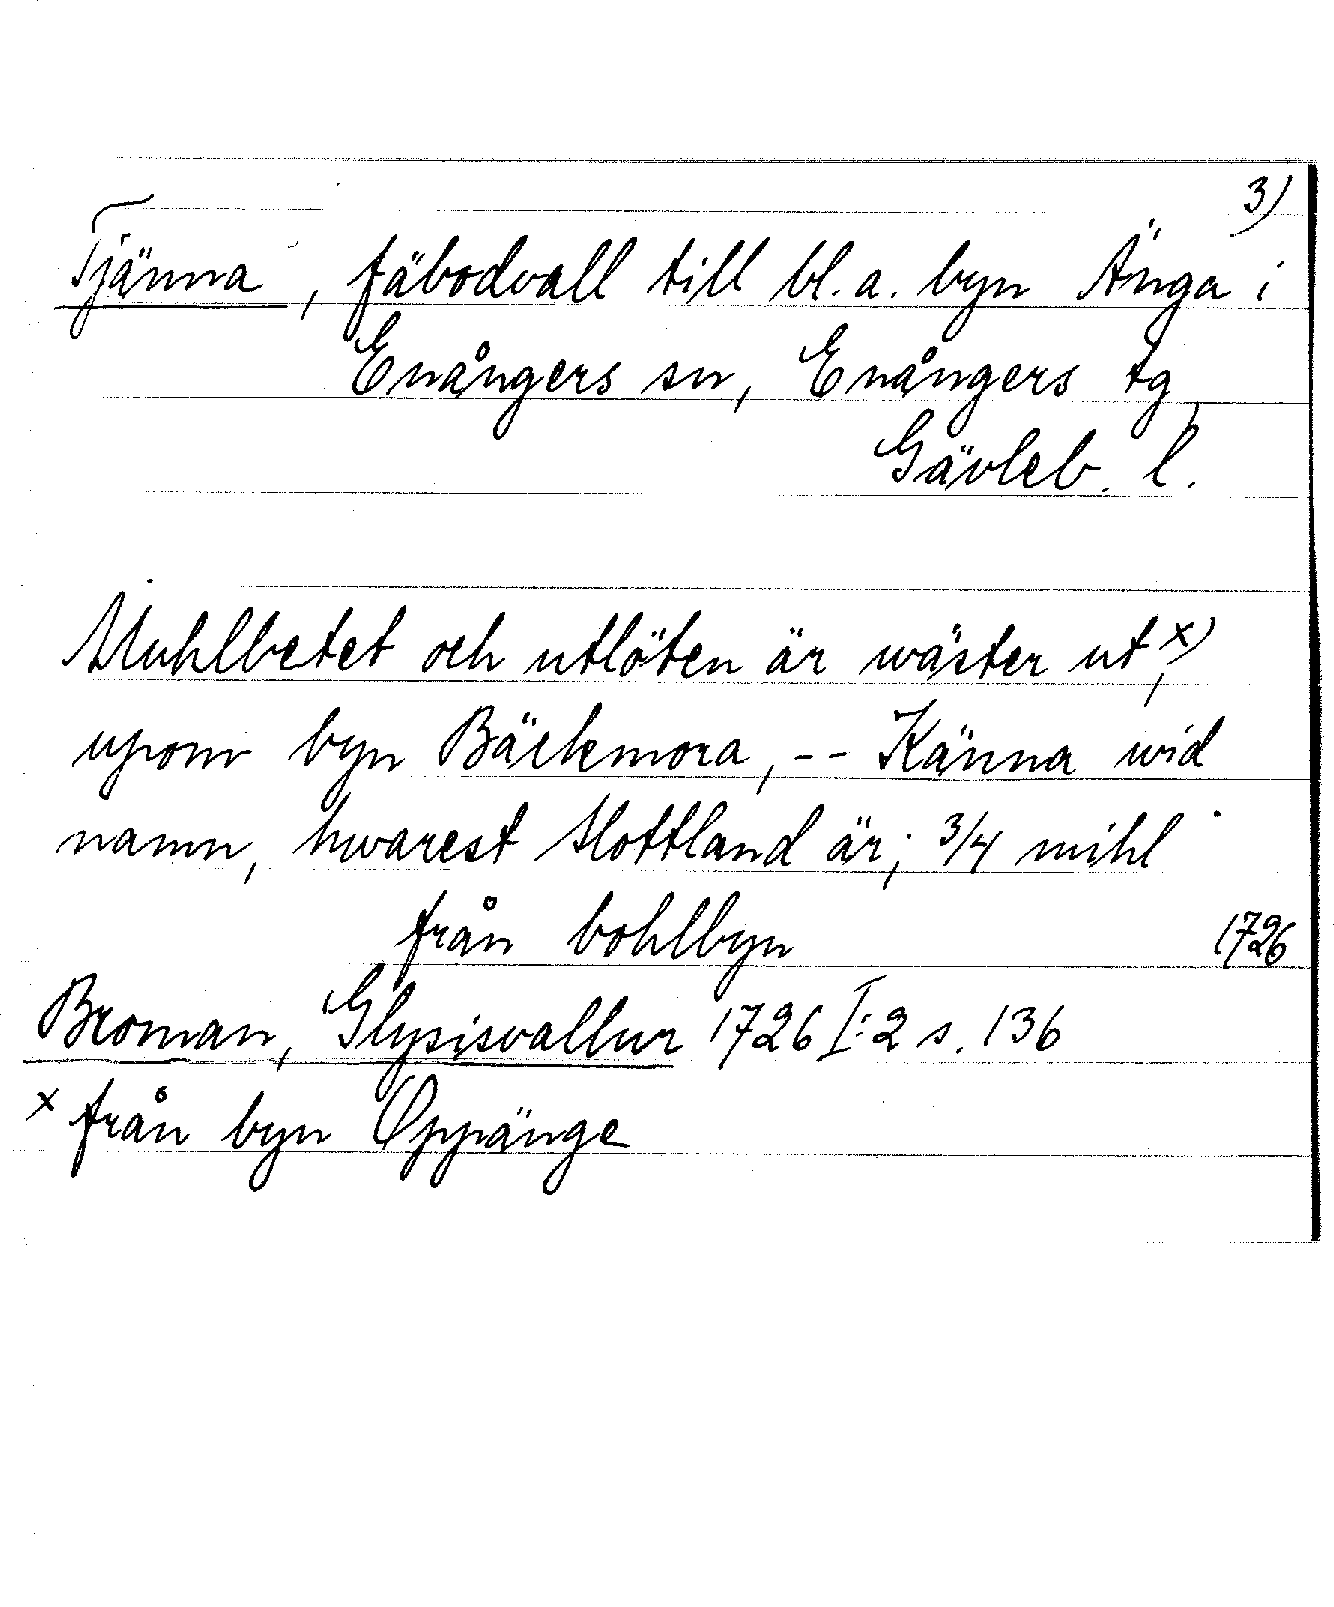 3)
Tjänna, fäbodvall till bl.a. byn Änga i
Enångers sn, Enångers tg
Gävleb. l.
Muhlbetet och utlöten är wäster ut,x)
upom byn Bäckmora, -- Känna wid
namn, hwarest slottland är; 3/4 mihl
från bohlbyn 1726
Broman, Glysisvallur 1726 I:2 s. 136
x från byn Oppänge